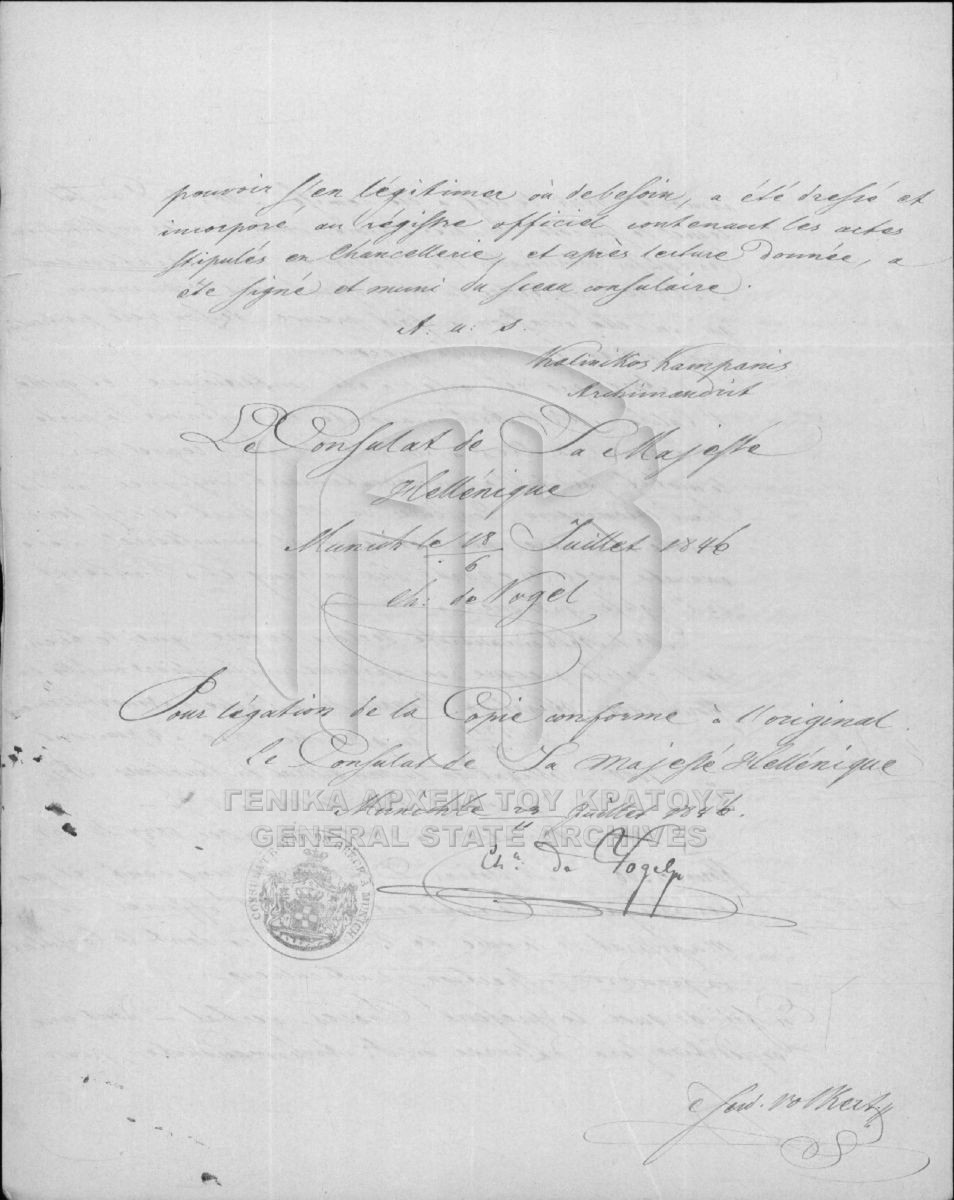 pouvoir s'en légitimer où debesoin, a été dressé et
incorporé au régistre officiel contenant les actes
stipulés en Chancellerie, et après lecture donnée, a
été signé et muni du sceau consulaire.
A. u. s.
Kalinikos Kampanis
Archimandrit
Le Consulat de Sa Majesté
Hellénique
Munich le 18/6 Juillet 1846
Ch: de Vogel
Pour légation de la Copie conforme à l'original.
le Consulat de Sa Majesté Hellénique
ΓΕΝΙΚΑ ΑΡΧΕΙΑ ΤΟΥ ΚΡΑΤΟΥΣ
Munich le 23/11 Juillet 1846.
GENERAL STATE ARCHIVES
Ch: de Vogel
CONSULAT A MUNICH
Volkert